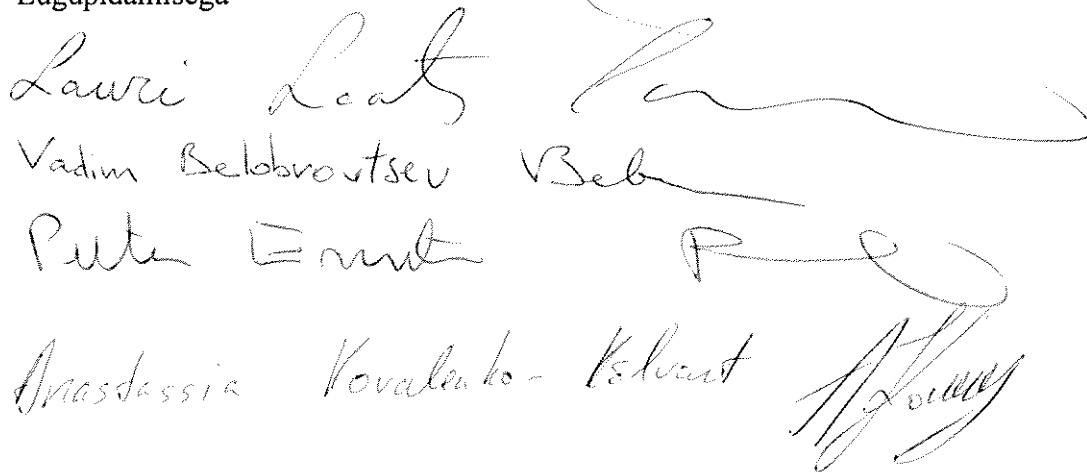 Lugupidamisega
Lauri Laats
Vadim Belobrovtsev VBel
Peeter Ernits
Anastassia Kovalenko-Kõlvart